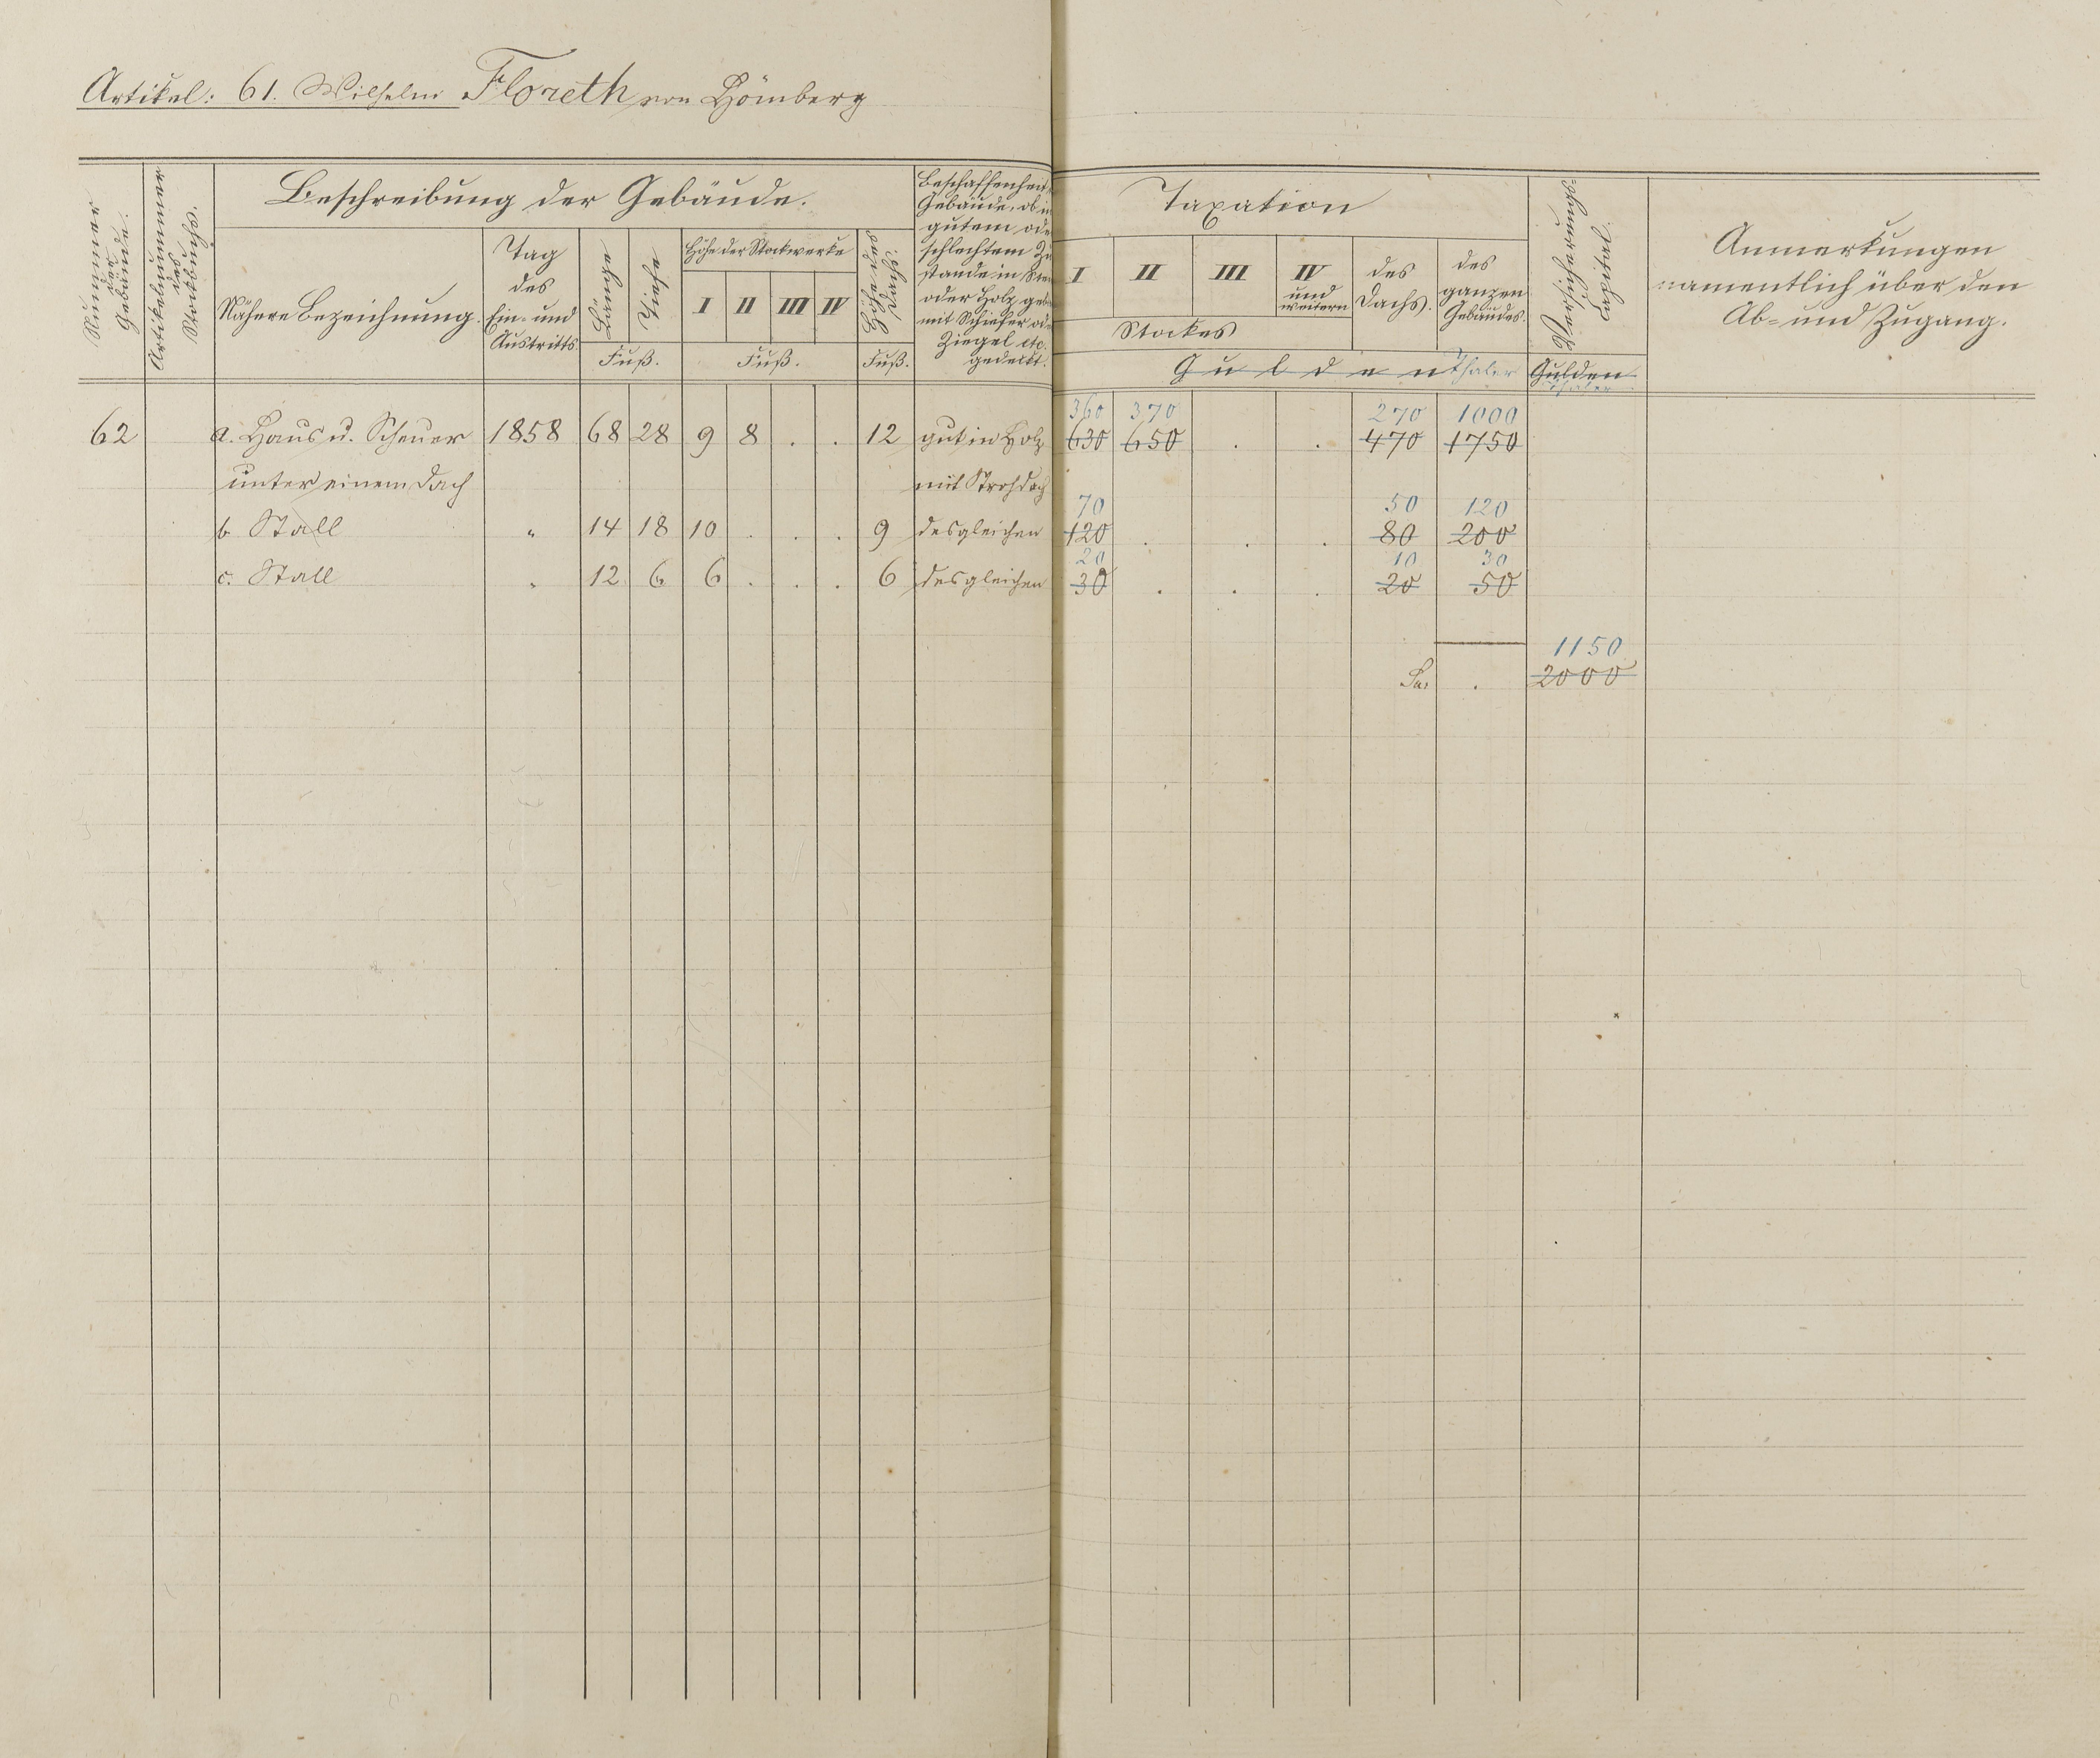 Artikel: 61. Wilhelm Floreth von Hömberg
Nummer der Gebäude.
Artikelnummer des Stockbuchs.
Beschreibung der Gebäude.
Nähere Bezeichnung.
Tag des Ein- und Austritts.
Länge
Tiefe
Fuß.
Höhe der Stockwerke
I II III IV
Fuß.
Höhe des Dachs.
Fuß.
Beschaffenheit
Gebäude, ob in
gutem ode
schlechtem Zu
stande in Stei
oder Holz geb
mit Schiefer ode
Ziegel etc.
gedeckt.
Taxation
I II III IV und weitern
Stockes
des Dachs.
des ganzen Gebäudes.
Gulden Thaler
Versicherungs-Capital.
Gulden
Thaler
Anmerkungen
namentlich über den
Ab- und Zugang.
360 370 270 1000
62 a. Haus u. Scheuer 1858 68 28 9 8 . . 12 gut in Holz 630 650 . . 470 1750
unter einem Dach mit Strohdach
70 50 120
b. Stall " 14 18 10 . . . 9 desgleichen 120 . . . 80 200
20 10 30
c. Stall " 12 6 6 . . . 6 desgleichen 30 . . . 20 50
1150
Sa. . 2000